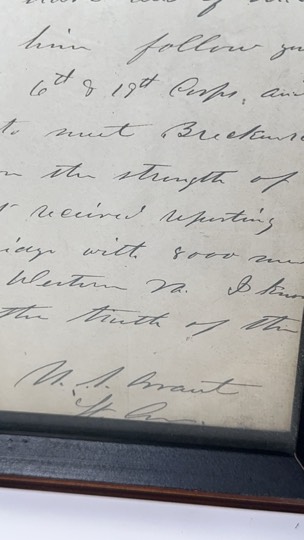 him follow yo
6th & 19th Corps, and
to meet Breckenr
on the strength of
received reporting
idge with 8000 me
Western Va. I kno
the truth of the
U. S. Grant
Lt. Gen.